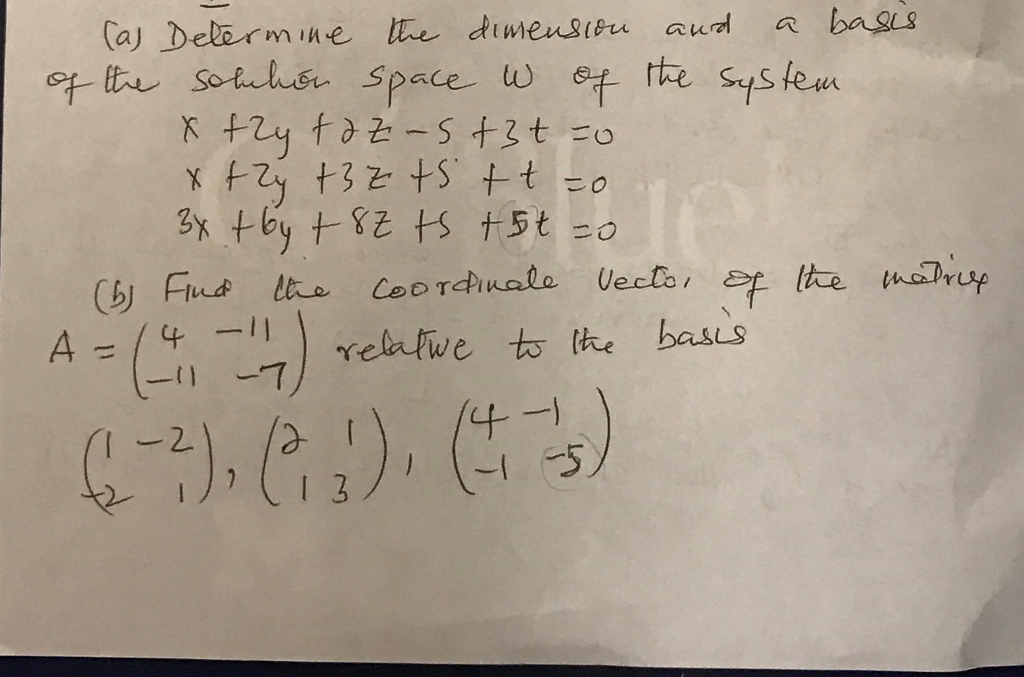 (a) Determine the dimension and a basis
of the solution space W of the system
x + 2y + 2z - s + 3t = 0
x + 2y + 3z + s + t = 0
3x + 6y + 8z + s + 5t = 0
(b) Find the coordinate vector of the matrix
A = ( 4 -11 ) relative to the basis
( -11 -7 )
( 1 -2 ), ( 2 1 ), ( 4 -1 )
( -2 1 ) ( 1 3 ) ( -1 -5 )